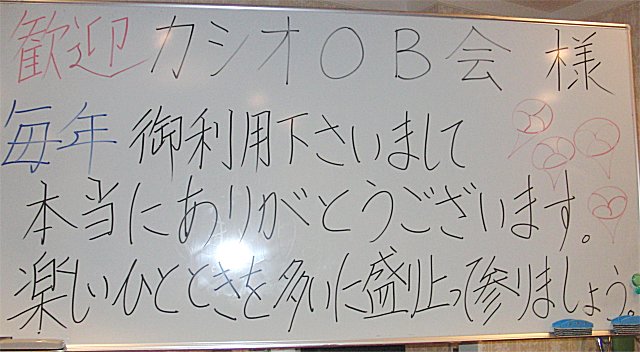 歓迎 カシオOB会 様
毎年 御利用下さいまして
本当にありがとうございます。
楽しいひとときを多いに盛り上って参りましょう。